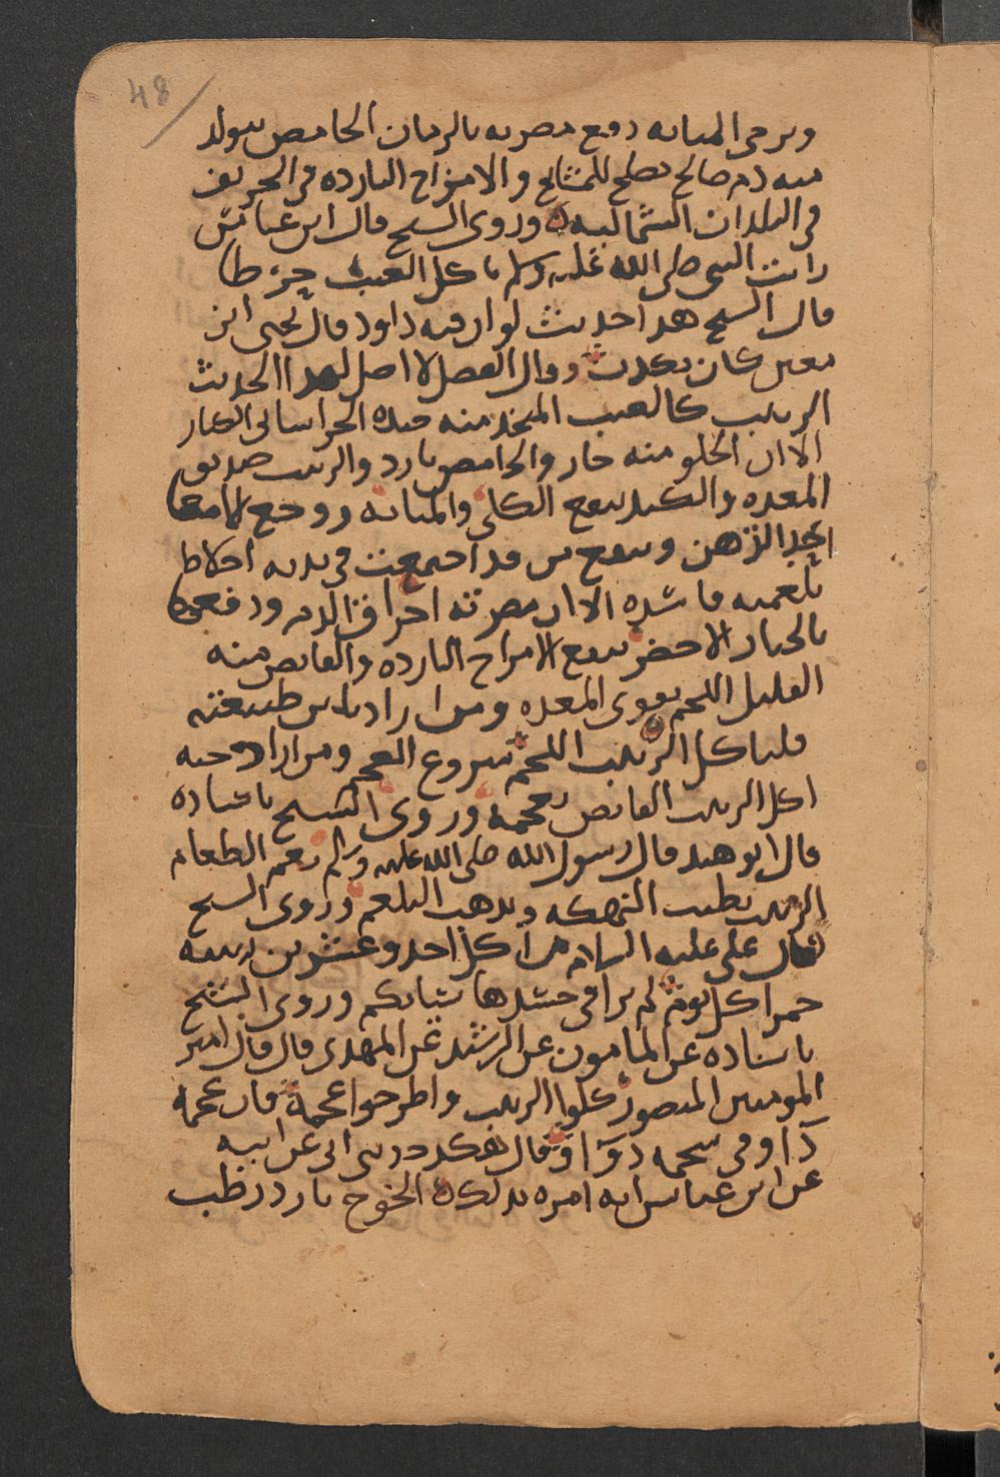 48
ويرمي المثانه دفع مضرته بالرمان الحامض يتولد
منه دم صالح يصلح للمشايخ والامزاج البارده في الخريف
في البلدان الشماليه وروى الشيخ قال ابن عباس
رايت النبي صلى الله عليه وسلم ياكل العنب خرطا
قال الشيخ هذا حديث لوان فيه داود قال يحيى ابن
معين كان يكذب وقال الفضل لا اصل لهذا الحديث
الزبيب كالعنب المتخذ منه جيده الخراساني الكبار
الا ان الحلو منه حار والحامض بارد والزبيب صديق
المعده والكبد ينفع الكلى والمثانه ووجع الامعا
الذهن وينفع من قد اجتمعت في بدنه اخلاط
بلغميه فاسده الا ان مضرته احراق الدم ودفعه
بالخيار الاخضر ينفع الامزاج البارده والقابض منه
القليل اللحم يقوي المعده ومن اراد طبيعته
فلياكل الزبيب اللحم منزوع العجم ومن اراد
اكل الزبيب القابض بعجمه وروى الشيخ باسناده
قال ابو هند قال رسول الله صلى الله عليه وسلم نعم الطعام
الزبيب يطيب النهكه ويذهب البلغم وروى الشيخ
قال علي عليه السلام من اكل احد وعشرين زبيبه
حمرا كل يوم لم يرا في جسده وروى الشيخ
باسناده عن المامون عن الرشيد عن المهدي قال قال امير
المومنين المنصور كلوا الزبيب واطرحوا عجمه فان عجمه
دآ وفي شحمه دوآ وقال هكذا ابي عن ابيه
عن ابن عباس انه امره بذلك الخوخ بارد رطب